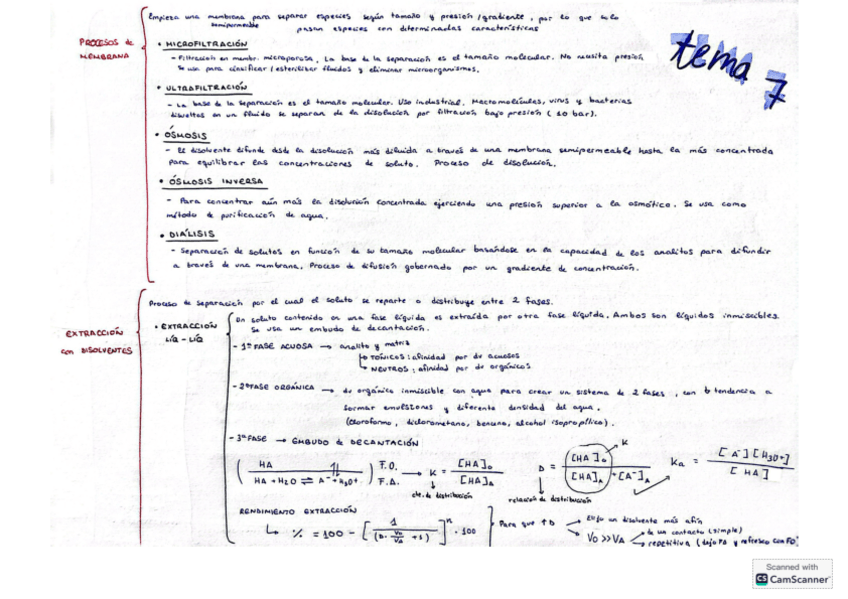 tema 7
PROCESOS de MEMBRANA
Empieza una membrana para separar especies según tamaño y presión/gradiente, por lo que solo
semipermeable
pasan especies con determinadas características
• MICROFILTRACIÓN
- Filtración en membr. microporosa. La base de la separación es el tamaño molecular. No necesita presión
Se usa para clarificar/esterilizar fluidos y eliminar microorganismos.
• ULTRAFILTRACIÓN
- La base de la separación es el tamaño molecular. Uso industrial. Macromoléculas, virus y bacterias
disueltos en un fluido se separan de la disolución por filtración bajo presión (10 bar).
• ÓSMOSIS
- El disolvente difunde desde la disolución más diluida a través de una membrana semipermeable hasta la más concentrada
para equilibrar las concentraciones de soluto. Proceso de disolución.
• ÓSMOSIS INVERSA
- Para concentrar aún más la disolución concentrada ejerciendo una presión superior a la osmótica. Se usa como
método de purificación de agua.
• DIÁLISIS
- Separación de solutos en función de su tamaño molecular basándose en la capacidad de los analitos para difundir
a través de una membrana. Proceso de difusión gobernado por un gradiente de concentración.
EXTRACCIÓN con DISOLVENTES
Proceso de separación por el cual el soluto se reparte o distribuye entre 2 fases.
• EXTRACCIÓN LÍQ-LÍQ
Un soluto contenido en una fase líquida es extraída por otra fase líquida. Ambos son líquidos inmiscibles.
Se usa un embudo de decantación.
- 1º FASE ACUOSA → analito y matriz
↳ IÓNICOS: afinidad por dv acuosos
↳ NEUTROS: afinidad por dv orgánicos
- 2º FASE ORGÁNICA → dv orgánico inmiscible con agua para crear un sistema de 2 fases, con ↓ tendencia a
formar emulsiones y diferente densidad del agua.
(cloroformo, diclorometano, benceno, alcohol isopropílico).
- 3º FASE → EMBUDO de DECANTACIÓN
( HA ⇅ / HA + H2O ⇌ A⁻ + H3O⁺ ) F.O. / F.A. → K = [HA]o / [HA]A
cte. de distribución
D = [HA]o / [HA]A + [A⁻]A
K
relación de distribución
Ka = [A⁻][H3O⁺] / [HA]
RENDIMIENTO EXTRACCIÓN
↳ % = 100 - [ 1 / (D · Vo/VA + 1) ]ⁿ · 100
Para que ↑D
Elijo un disolvente más afín
Vo >> VA
de un contacto (simple)
repetitiva (dejo FA y refresco con FO)
Scanned with
CS CamScanner